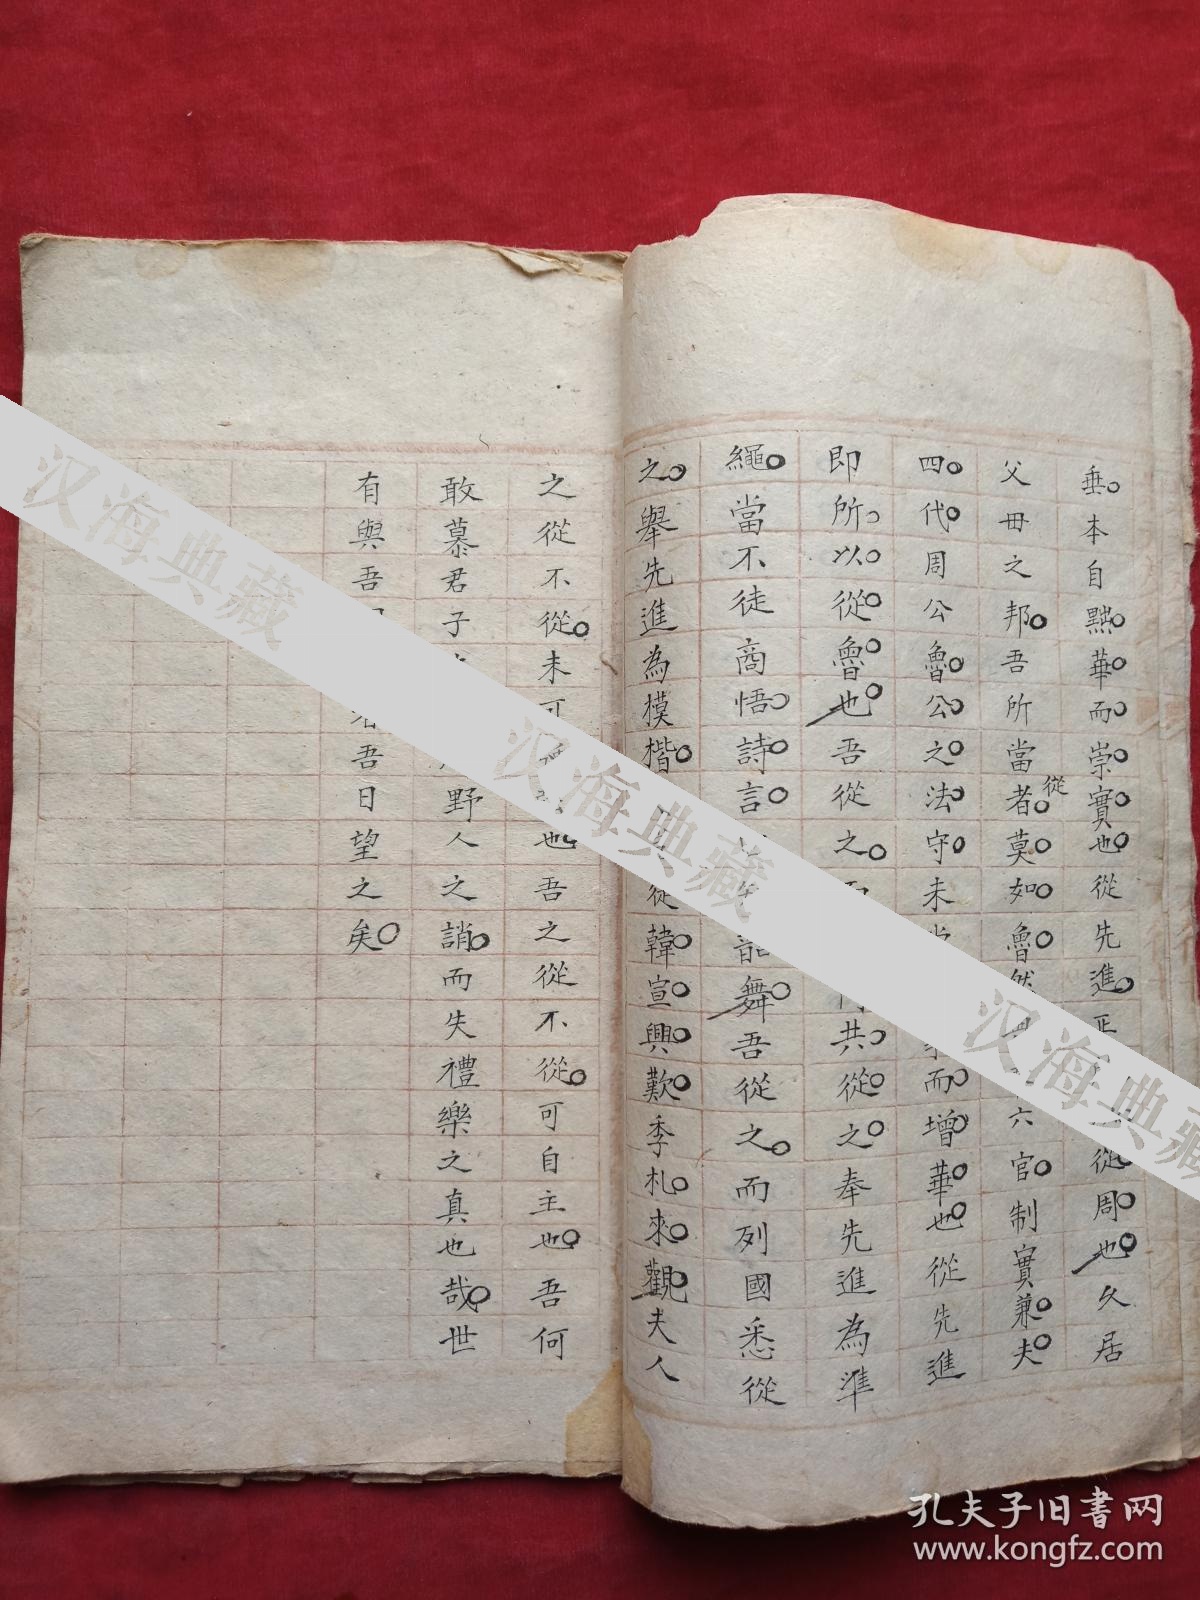 垂本自黜華而崇實也從先進
從周也久居
父毋之邦吾所當從者莫如魯然
六官制實兼夫
四代周公魯公之法守未
而增華也從先進
即所以從魯也吾從之
共從之奉先進為準
繩當不徒商悟詩言
韶舞吾從之而列國悉從
之舉先進為摸楷
從韓宣興歎季札來觀夫人
之從不從未可
也吾之從不從可自主也吾何
敢慕君子
野人之誚而失禮樂之真也哉世
有與吾
吾日望之矣
汉海典藏
汉海典藏
汉海典藏
孔夫子旧书网
www.kongfz.com